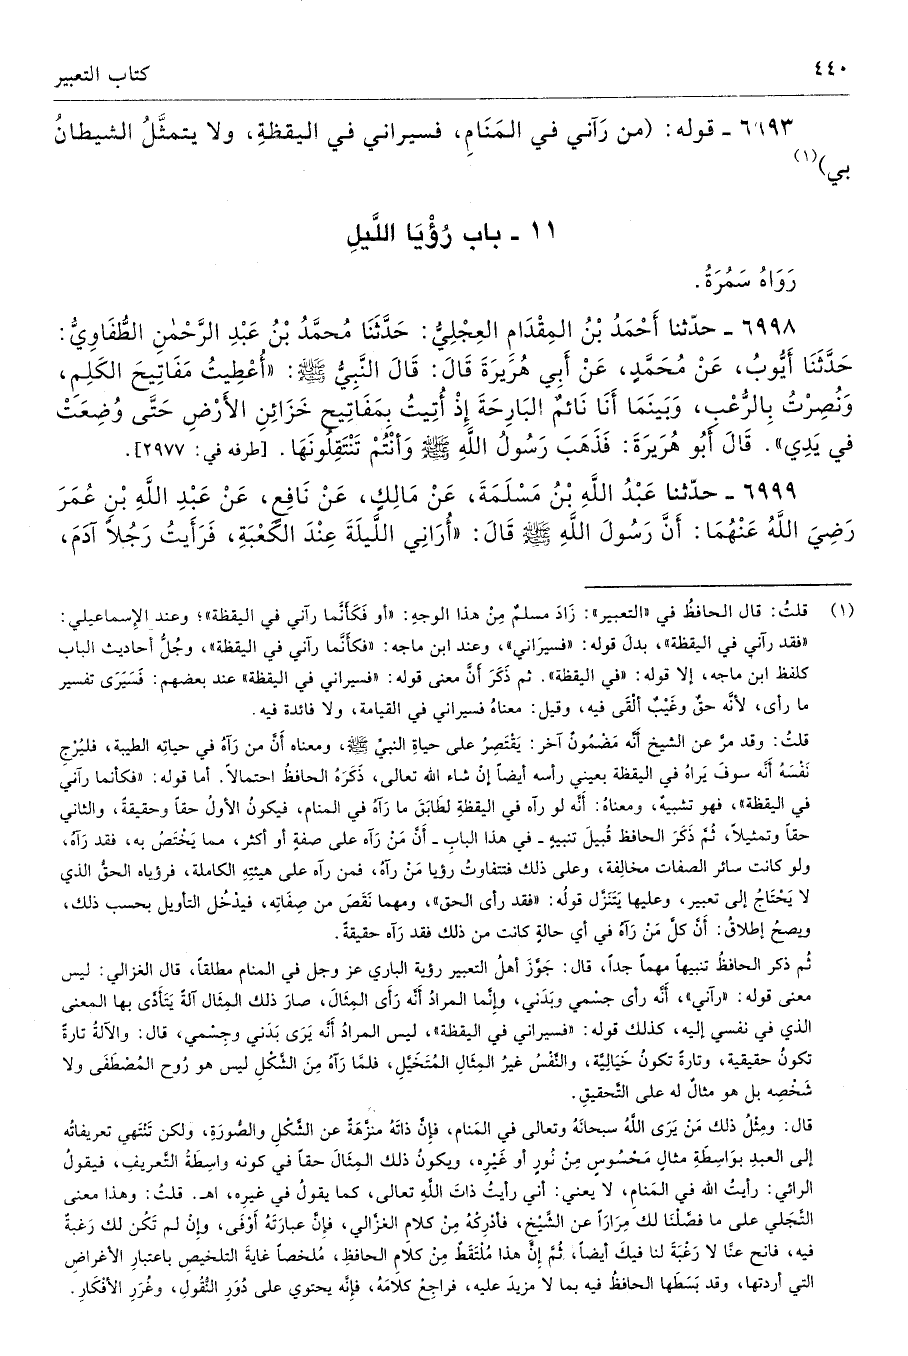 ٤٤٠
كتاب التعبير
٦٩٩٣ ـ قوله: (من رَآني في المَنَامِ، فسيراني في اليقظةِ، ولا يتمثَّلُ الشيطانُ
بي)(١)
١١ ـ باب رُؤْيَا اللَّيلِ
رَوَاهُ سَمُرَةُ.
٦٩٩٨ ـ حدّثنا أَحْمَدُ بْنُ المِقْدَامِ العِجْلِيُّ: حَدَّثَنَا مُحمَّدُ بْنُ عَبْدِ الرَّحْمٰنِ الطُّفَاوِيُّ:
حَدَّثَنَا أَيُّوبُ، عَنْ مُحَمَّدٍ، عَنْ أَبِي هُرَيرَةَ قَالَ: قَالَ النَّبِيُّ ﷺ: «أُعْطِيتُ مَفَاتِيحَ الكَلِمِ،
وَنُصِرْتُ بِالرُّعْبِ، وَبَينَمَا أَنَا نَائمٌ البَارِحَةَ إِذْ أُتِيتُ بِمَفَاتِيحِ خَزَائِنِ الأَرْضِ حَتَّى وُضِعَتْ
في يَدِي». قَالَ أَبُو هُرَيرَةَ: فَذَهَبَ رَسُولُ اللَّهِ ﷺ وَأَنْتُمْ تَنْتَقِلُونَهَا. [طرفه في: ٢٩٧٧].
٦٩٩٩ ـ حدّثنا عَبْدُ اللَّهِ بْنُ مَسْلَمَةَ، عَنْ مَالِكٍ، عَنْ نَافِعٍ، عَنْ عَبْدِ اللَّهِ بْنِ عُمَرَ
رَضِيَ اللَّهُ عَنْهُمَا: أَنَّ رَسُولَ اللَّهِ ﷺ قَالَ: «أُرَانِي اللَّيلَةَ عِنْدَ الكَعْبَةِ، فَرَأَيتُ رَجُلاً آدَمَ،
(١) قلتُ: قال الحافظُ في «التعبير»: زَادَ مسلمٌ مِنْ هذا الوجهِ: «أو فَكَأَنَّما رآني في اليقظة»؛ وعند الإسماعيلي:
«فقد رآني في اليقظة»، بدلَ قوله: «فسيرَاني»، وعند ابن ماجه: «فكأَنَّما رآني في اليقظة»، وجُلُّ أحاديث الباب
كلفظ ابن ماجه، إلا قوله: «في اليقظة». ثم ذَكَرَ أَنَّ معنى قوله: «فسيراني في اليقظة» عند بعضهم: فَسَيَرَى تفسير
ما رأى، لأنَّه حقٌ وغَيْبٌ أُلْقَى فيه، وقيل: معناهُ فسيراني في القيامة، ولا فائدة فيه.
قلتُ: وقد مرَّ عن الشيخ أنَّه مَضْمُونٌ آخر: يَقْتَصِرُ على حياةِ النبيِّ ﷺ، ومعناه أَنَّ من رَآهُ في حياتِه الطيبة، فليُرْجِ
نَفْسَهُ أنَّه سوفَ يَراهُ في اليقظة بعيني رأسه أيضاً إنْ شاء الله تعالى، ذَكَرَهُ الحافظُ احتمالاً. أما قوله: «فكأنما رآني
في اليقظة»، فهو تشبيهٌ، ومعناهُ: أَنَّه لو رآه في اليقظةِ لطَابَقَ ما رَآهُ في المنام، فيكونُ الأولُ حقاً وحقيقةً، والثاني
حقاً وتمثيلاً، ثُمَّ ذَكَرَ الحافظ قُبيلَ تنبيهٍ ـ في هذا البابِ ـ أنَّ مَنْ رَآه على صفةٍ أو أكثر، مما يَخْتَصُ به، فقد رَآه،
ولو كانت سائر الصفات مخالِفة، وعلى ذلك فتتفاوتُ رؤيا مَنْ رآهُ، فمن رآه على هيئتِه الكاملة، فرؤياه الحقُ الذي
لا يَحْتَاجُ إلى تعبير، وعليها يَتَنَزَّل قولُه: «فقد رأى الحق»، ومهما نَقَصَ من صِفَاتِه، فيدْخُل التأويل بحسب ذلك،
ويصحُ إطلاقُ: أَنَّ كلَّ مَنْ رَآهُ في أي حالةٍ كانت من ذلك فقد رَآه حقيقةً.
ثُم ذكر الحافظُ تنبيهاً مهماً جداً، قال: جَوَّزَ أهلُ التعبير رؤية الباري عز وجل في المنام مطلقاً، قال الغزالي: ليس
معنى قوله: «رآني»، أنَّه رأى جسْمي وبَدَني، وإنَّما المرادُ أنَّه رَأَى المِثَالَ، صارَ ذلك المِثَال آلةً يَتَأَدَّى بها المعنى
الذي في نفسي إليه، كذلك قوله: «فسيراني في اليقظة»، ليس المرادُ أنَّه يَرَى بَدَني وجِسْمي، قال: والآلةُ تارةً
تكونُ حقيقية، وتارةً تكونُ خَيَاليَّة، والنَّفْسُ غيرُ المِثَالِ المُتَخَيَّلِ، فلمَّا رَآهُ مِنَ الشَّكْلِ ليس هو رُوح المُصْطَفَى ولا
شَخْصِه بل هو مثالٌ له على التَّحقيقِ.
قال: ومِثْلُ ذلك مَنْ يَرَى اللَّهُ سبحانَهُ وتعالى في المَنام، فإنَّ ذاتَهُ منزَّهَةٌ عن الشَّكْلِ والصُّورَةِ، ولكن تَنْتَهي تعريفاتُه
إلى العبدِ بوَاسِطَةِ مثالٍ مَحْسُوسٍ مِنْ نُورٍ أو غَيْره، ويكونُ ذلك المِثَالَ حقاً في كونه واسِطَةُ التَّعريف، فيقولُ
الرائي: رأيتُ الله في المَنام، لا يعني: أني رأيتُ ذاتَ اللَّهِ تعالى، كما يقولُ في غيرِه، اهـ. قلتُ: وهذا معنى
التَّجلي على ما فصَّلْنَا لك مِرَاراً عن الشَّيْخِ، فأدركْهُ مِنْ كلامِ الغزَّالي، فإنَّ عبارَتَهُ أَوْفَى، وإنْ لم تَكُن لك رَغبةٌ
فيه، فانح عنَّا لا رَغْبَةَ لنا فيكَ أيضاً، ثُمَّ إنَّ هذا مُلْتَقَطٌ مِنْ كلامِ الحافظِ، مُلخصاً غايةَ التلخيصِ باعتبارِ الأغراضِ
التي أردتها، وقد بَسَطَها الحافظُ فيه بما لا مزيدَ عليه، فراجِعْ كلامَهُ، فإنَّه يحتوي على دُوَرِ النُّقُولِ، وغُرَرِ الأفْكَارِ.